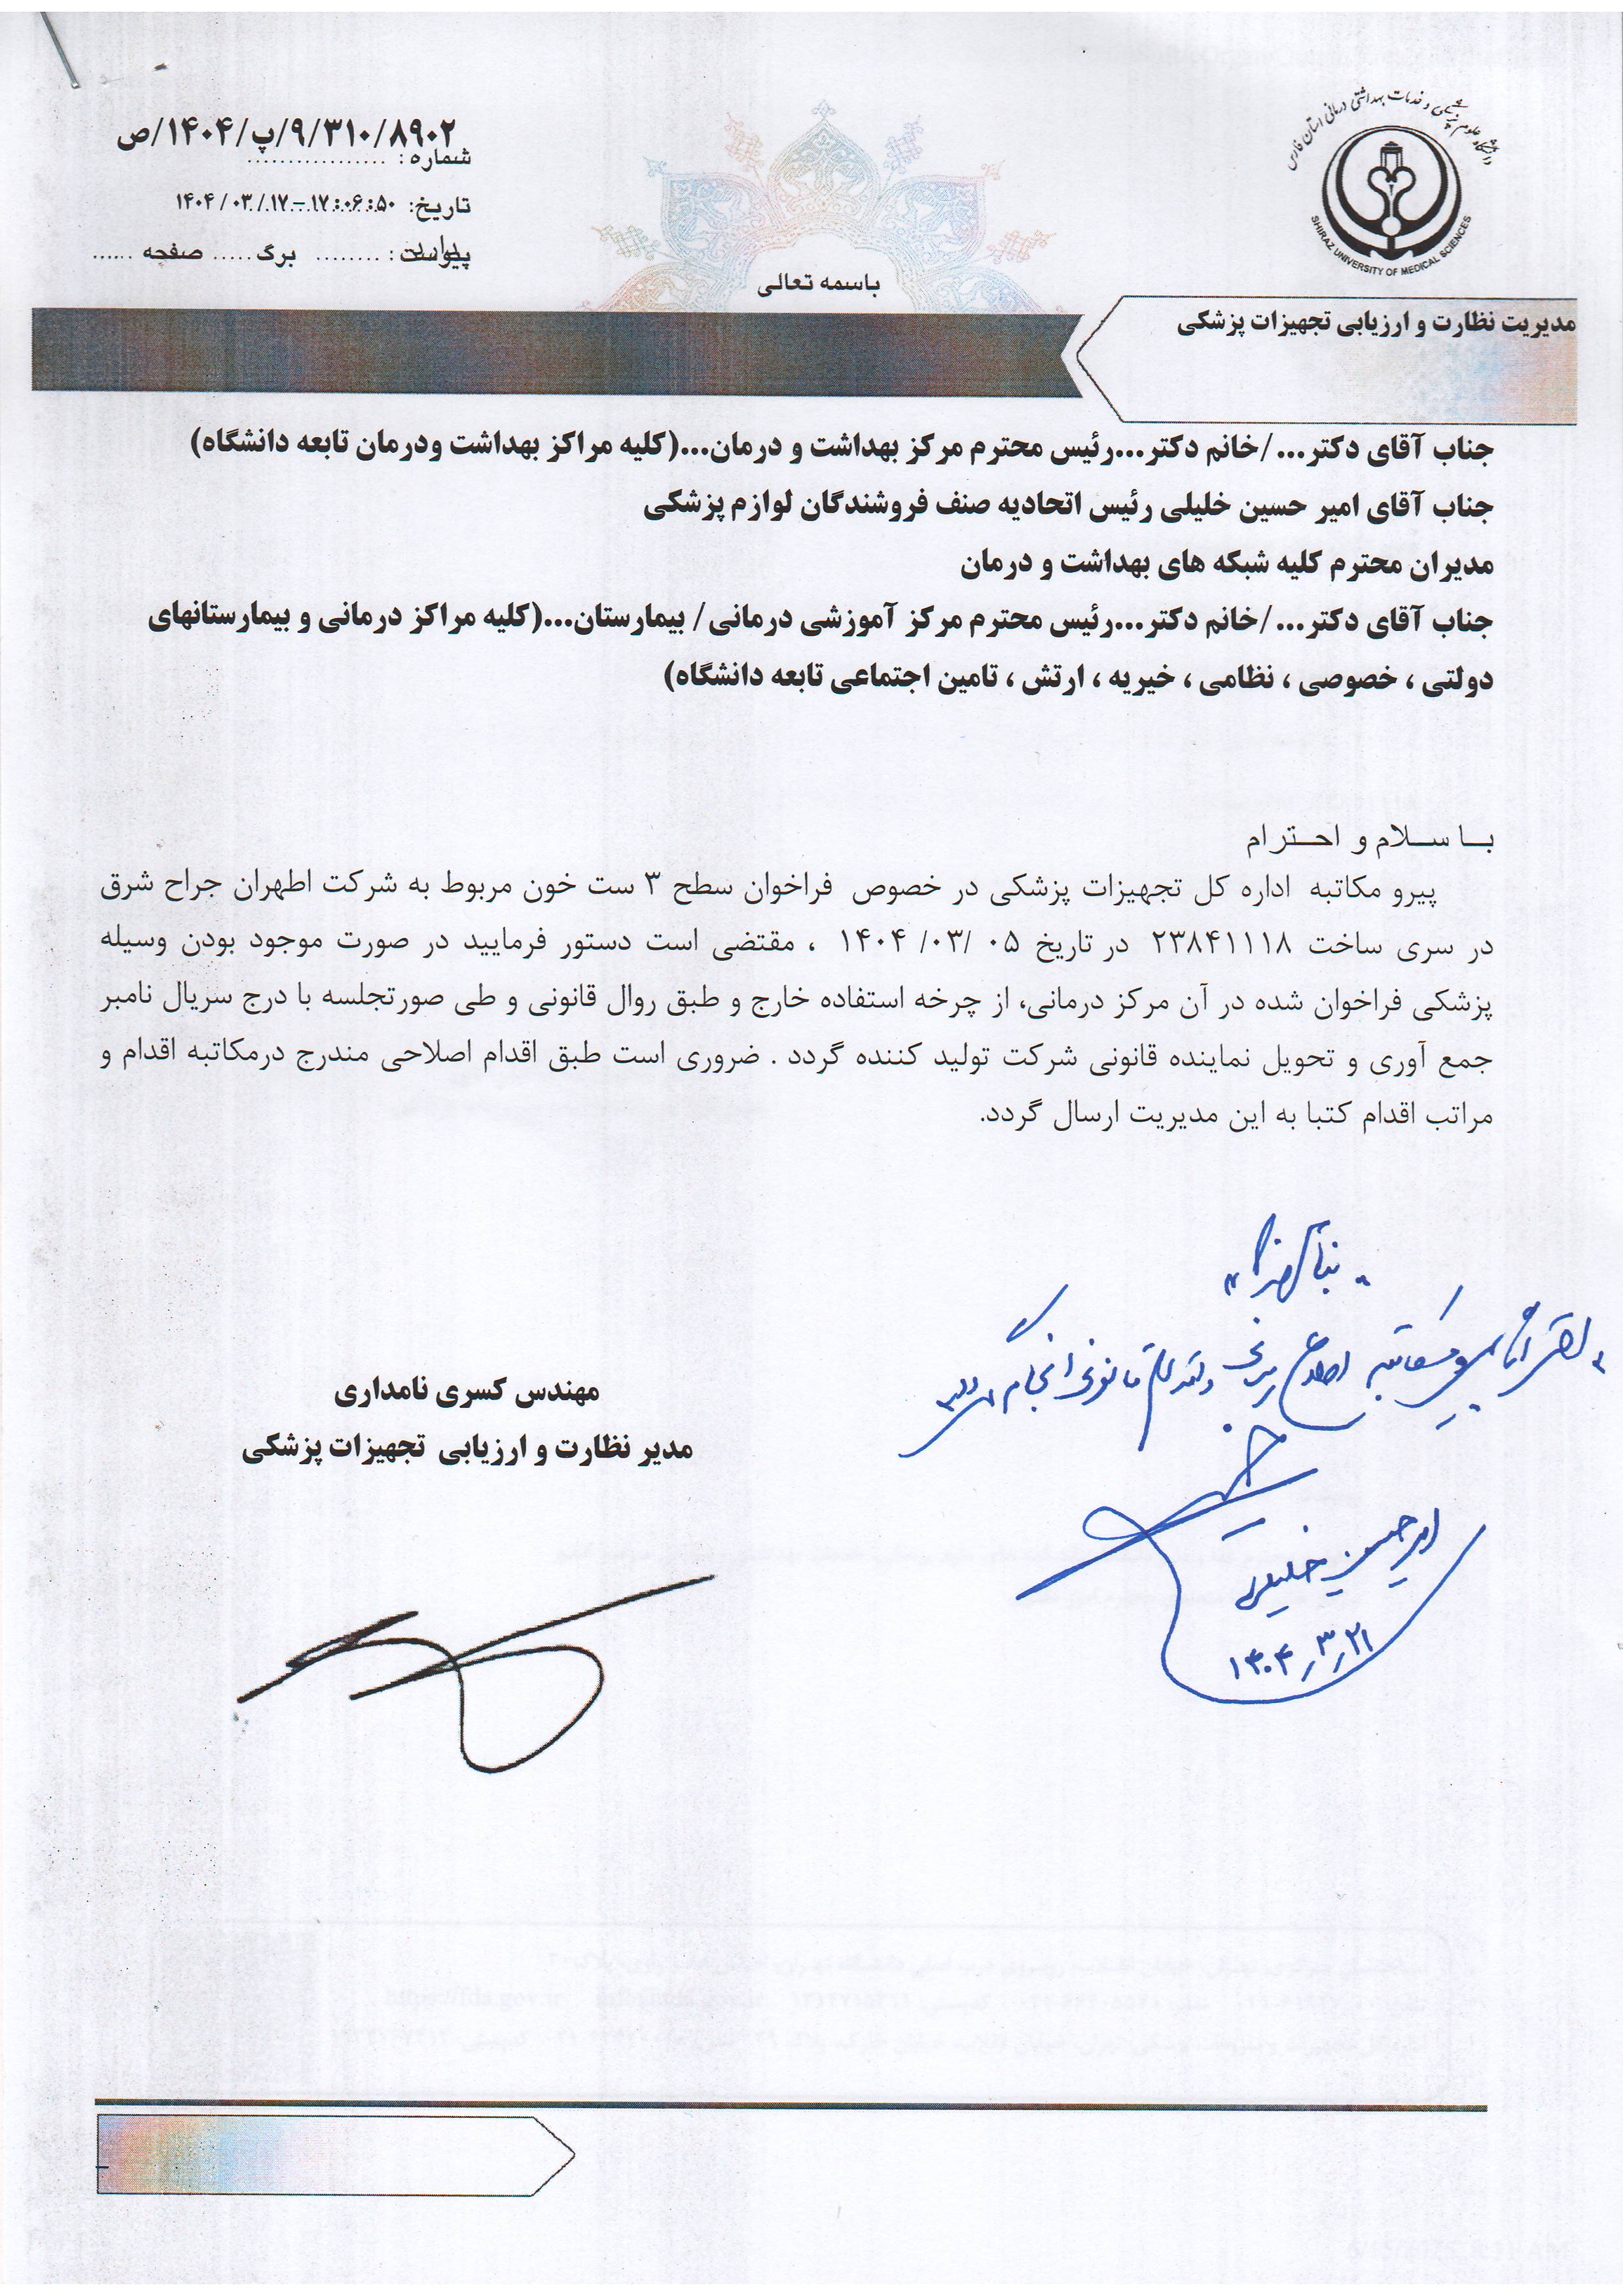 دانشگاه علوم پزشکی و خدمات بهداشتی درمانی استان فارس
SHIRAZ UNIVERSITY OF MEDICAL SCIENCES
۸۹۰۲/۳۱۰/۹/پ/۱۴۰۴/ص
شماره: .................
تاریخ: ۱۷:۰۶:۵۰ – ۱۴۰۴/۰۳/۱۷
پیوست: ........ برگ ..... صفحه ......
باسمه تعالی
مدیریت نظارت و ارزیابی تجهیزات پزشکی
جناب آقای دکتر... /خانم دکتر...رئیس محترم مرکز بهداشت و درمان...(کلیه مراکز بهداشت ودرمان تابعه دانشگاه)
جناب آقای امیر حسین خلیلی رئیس اتحادیه صنف فروشندگان لوازم پزشکی
مدیران محترم کلیه شبکه های بهداشت و درمان
جناب آقای دکتر... /خانم دکتر...رئیس محترم مرکز آموزشی درمانی/ بیمارستان...(کلیه مراکز درمانی و بیمارستانهای
دولتی ، خصوصی ، نظامی ، خیریه ، ارتش ، تامین اجتماعی تابعه دانشگاه)
بـا سـلام و احـترام
پیرو مکاتبه اداره کل تجهیزات پزشکی در خصوص فراخوان سطح ۳ ست خون مربوط به شرکت اطهران جراح شرق
در سری ساخت ۲۳۸۴۱۱۱۸ در تاریخ ۰۵ /۰۳/ ۱۴۰۴ ، مقتضی است دستور فرمایید در صورت موجود بودن وسیله
پزشکی فراخوان شده در آن مرکز درمانی، از چرخه استفاده خارج و طبق روال قانونی و طی صورتجلسه با درج سریال نامبر
جمع آوری و تحویل نماینده قانونی شرکت تولید کننده گردد . ضروری است طبق اقدام اصلاحی مندرج درمکاتبه اقدام و
مراتب اقدام کتبا به این مدیریت ارسال گردد.
اطلاع رسانی و اقدام قانونی انجام
مهندس کسری نامداری
مدیر نظارت و ارزیابی تجهیزات پزشکی
امیرحسین خلیلی
۱۴۰۴/۳/۲۱